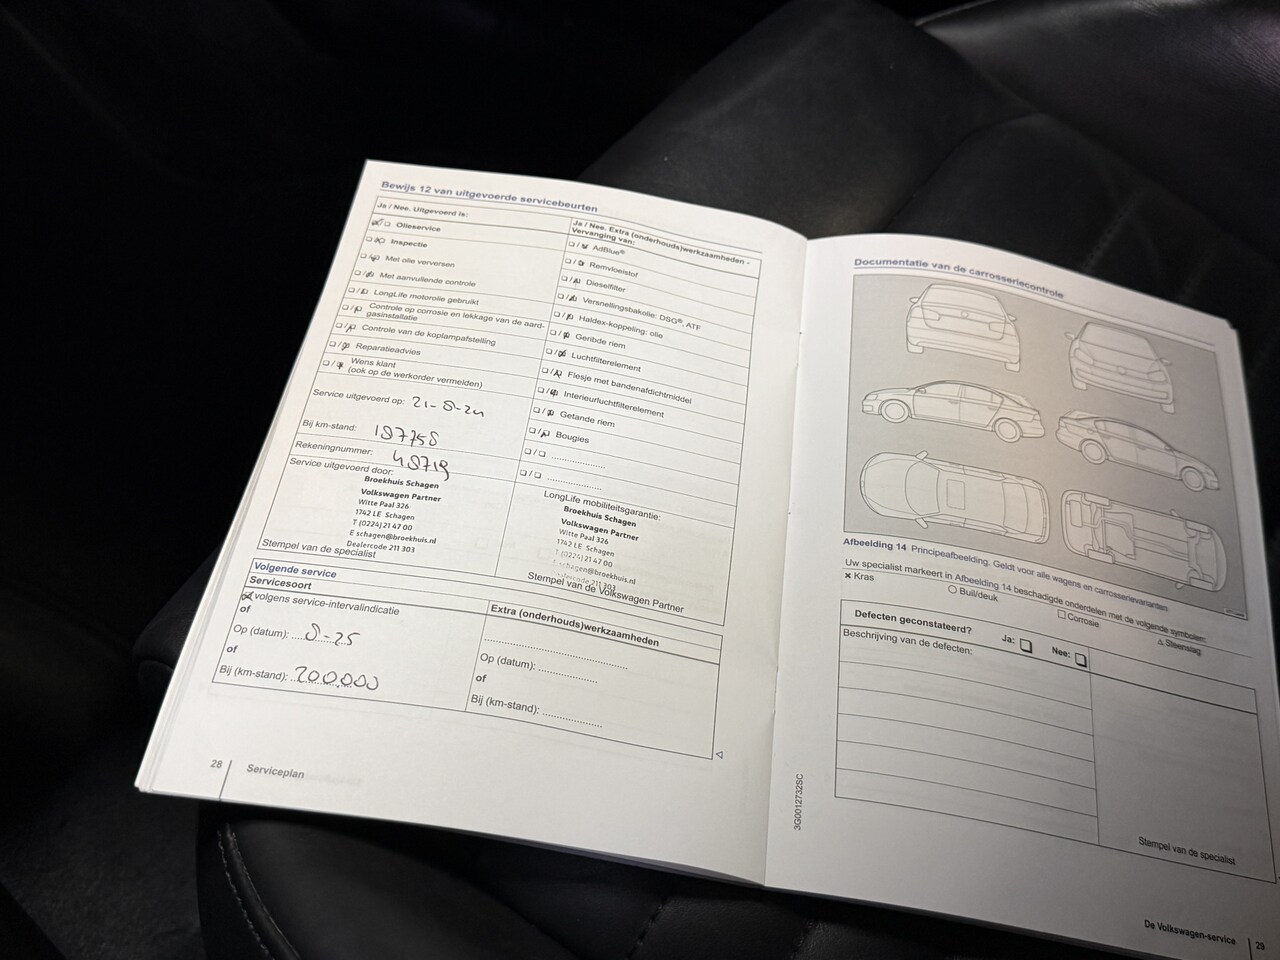 Bewijs 12 van uitgevoerde servicebeurten
Ja / Nee. Uitgevoerd is:
Olieservice
Inspectie
Met olie verversen
Met aanvullende controle
LongLife motorolie gebruikt
Controle op corrosie en lekkage van de aard-
gasinstallatie
Controle van de koplampafstelling
Reparatieadvies
Wens klant
(ook op de werkorder vermelden)
Service uitgevoerd op: 21-8-24
Bij km-stand:
Rekeningnummer:
Service uitgevoerd door:
Broekhuis Schagen
Volkswagen Partner
Witte Paal 326
1742 LE Schagen
T (0224) 21 47 00
E schagen@broekhuis.nl
Dealercode 211 303
Stempel van de specialist
Ja / Nee. Extra (onderhouds)werkzaamheden -
Vervanging van:
AdBlue®
Remvloeistof
Dieselfilter
Versnellingsbakolie: DSG®, ATF
Haldex-koppeling: olie
Geribde riem
Luchtfilterelement
Flesje met bandenafdichtmiddel
Interieurluchtfilterelement
Getande riem
Bougies
LongLife mobiliteitsgarantie:
Broekhuis Schagen
Volkswagen Partner
Witte Paal 326
1742 LE Schagen
T (0224) 21 47 00
schagen@broekhuis.nl
Dealercode 211 303
Stempel van de Volkswagen Partner
Volgende service
Servicesoort
volgens service-intervalindicatie
of
Op (datum): 8-25
of
Bij (km-stand): 200.000
Extra (onderhouds)werkzaamheden
Op (datum):
of
Bij (km-stand):
28 Serviceplan
Documentatie van de carrosseriecontrole
Afbeelding 14 Principeafbeelding. Geldt voor alle wagens en carrosserievarianten
Uw specialist markeert in Afbeelding 14 beschadigde onderdelen met de volgende symbolen:
Kras
Buil/deuk
Corrosie
Steenslag
Defecten geconstateerd?
Ja:
Nee:
Beschrijving van de defecten:
Stempel van de specialist
3G0012732SC
De Volkswagen-service 29